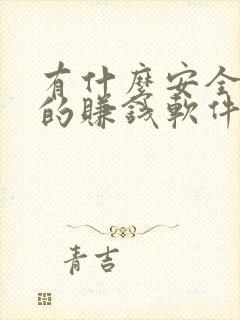 有什麼安全
的賺錢軟件
青吉